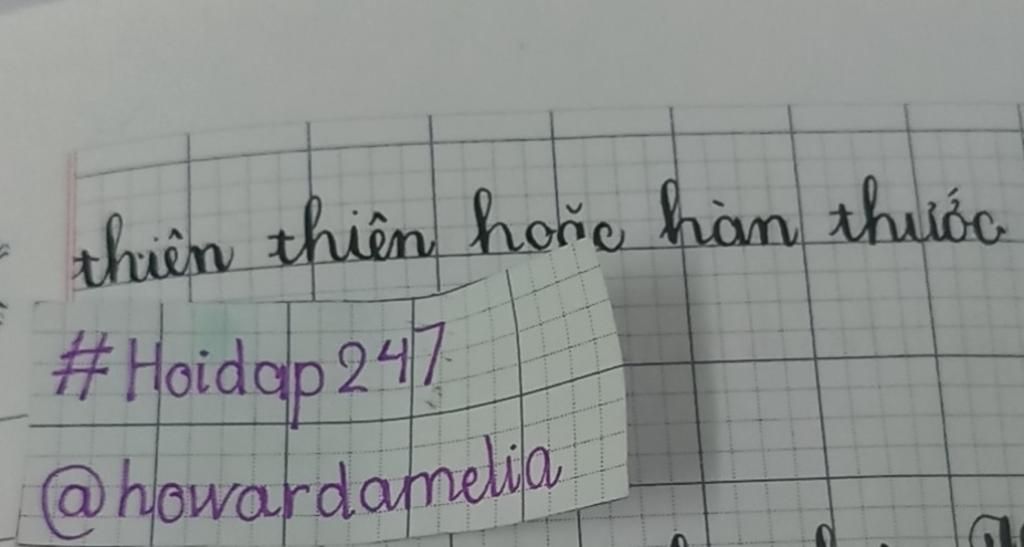 thiên thiên hoặc hàn thước
#Hoidap247
@howardamelia